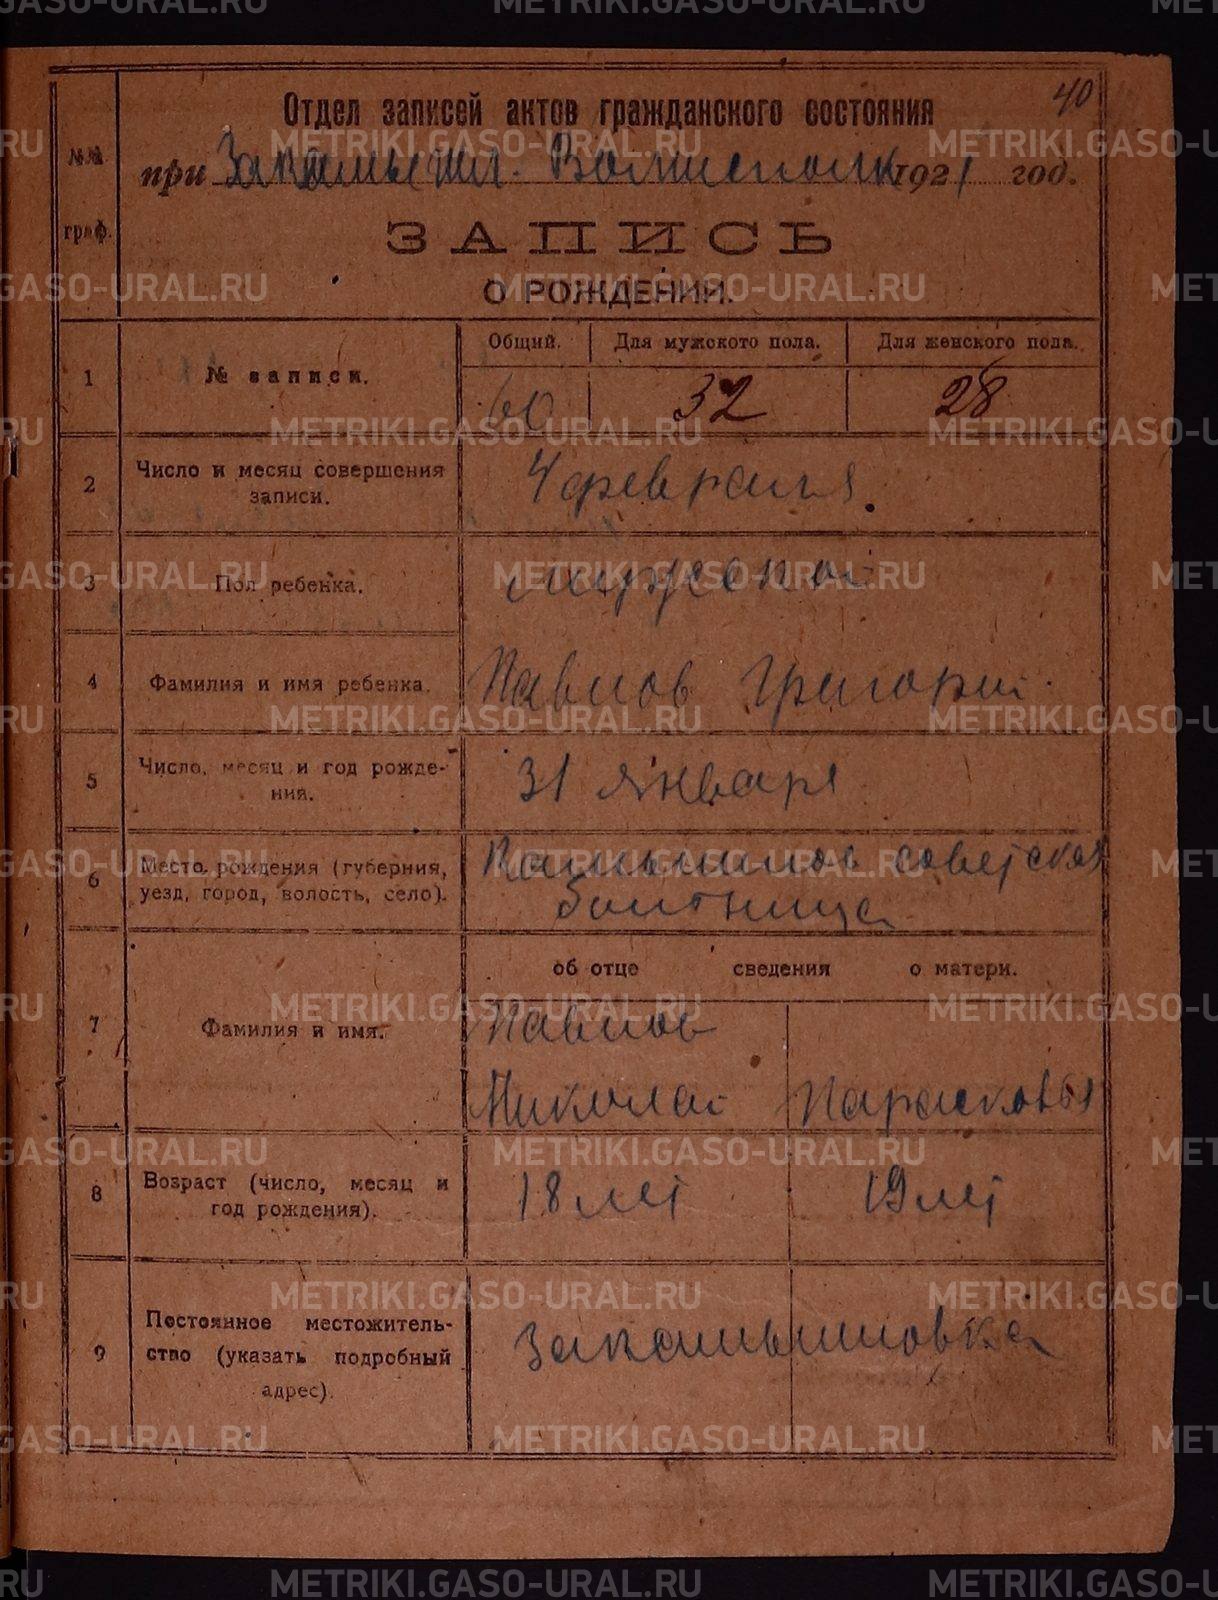 40
Отдел записей актов гражданского состояния
№№ граф.
при Закамышл. Волисполк 1921 год.
ЗАПИСЬ
О РОЖДЕНИИ.
1 № записи. Общий. Для мужского пола. Для женского пола.
60 32 28
2 Число и месяц совершения записи. 4 февраля.
3 Пол ребенка. мужской
4 Фамилия и имя ребенка. Павлов Григорий
5 Число, месяц и год рождения. 31 января
6 Место рождения (губерния, уезд, город, волость, село). Камышлов советская
больница
об отце сведения о матери.
7 Фамилия и имя. Павлов
Николай Парасковья
8 Возраст (число, месяц и год рождения). 18 лет 19 лет
9 Постоянное местожительство (указать подробный адрес). Закамышловка
METRIKI.GASO-URAL.RU